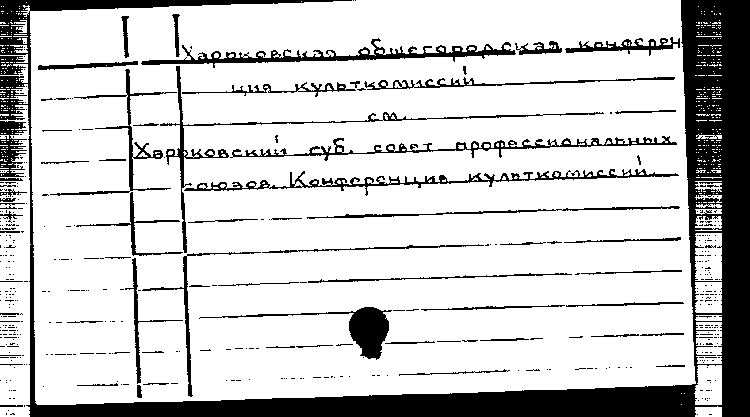 Харьковская общегородская конферен
ция культкомиссий.
см.
Харьковский губ. совет профессиональных
союзов. Конференция культкомиссий.